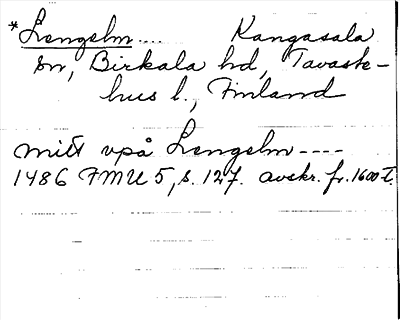 *Lengelm.... Kangasala
sn, Birkala hd, Tavaste-
hus l., Finland
mitt vpå Lengelm----
1486 FMU 5, s. 127. avskr. fr. 1600 t.